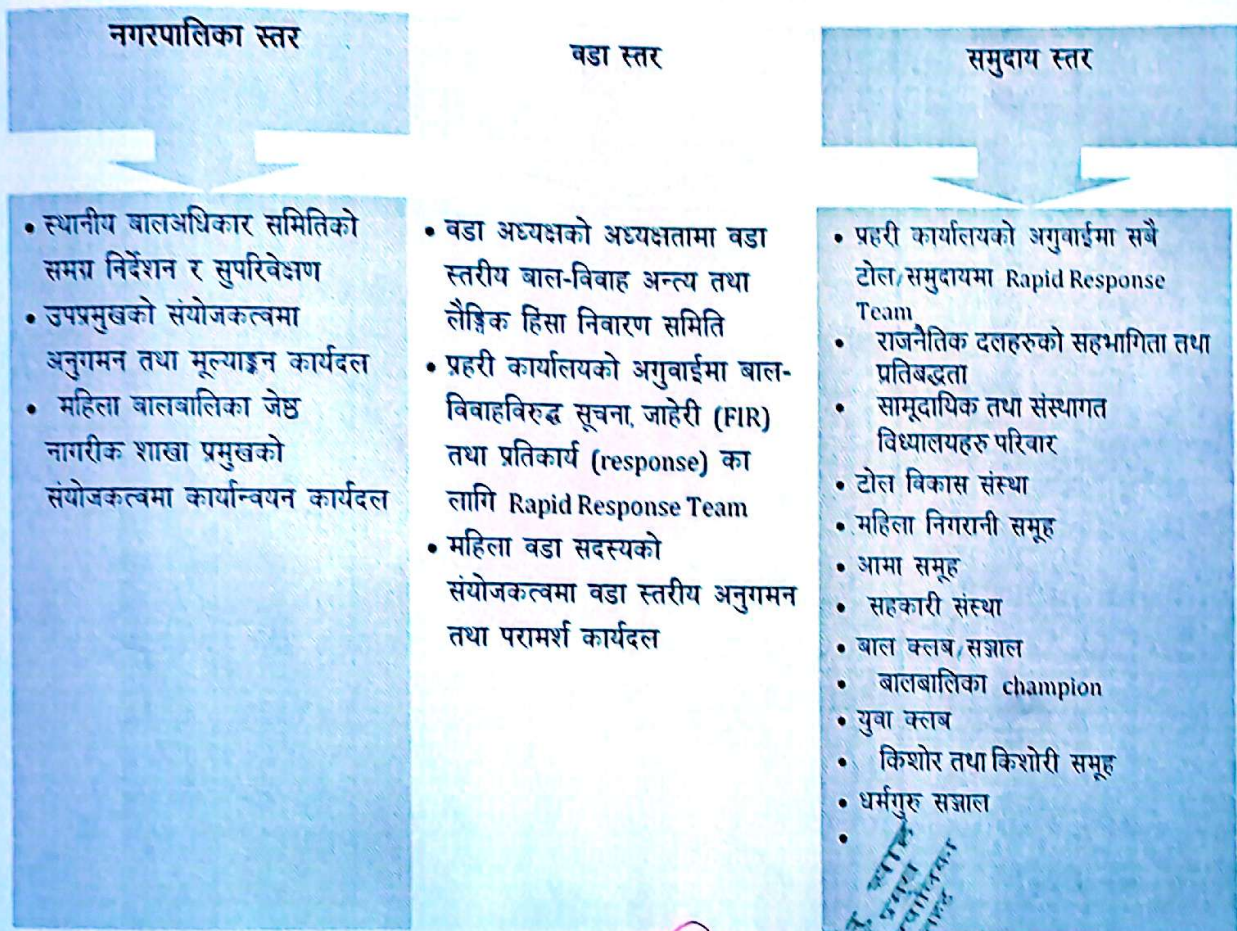 नगरपालिका स्तर
• स्थानीय बालअधिकार समितिको
समग्र निर्देशन र सुपरिवेक्षण
• उपप्रमुखको संयोजकत्वमा
अनुगमन तथा मूल्याङ्कन कार्यदल
• महिला बालबालिका जेष्ठ
नागरीक शाखा प्रमुखको
संयोजकत्वमा कार्यान्वयन कार्यदल
वडा स्तर
• वडा अध्यक्षको अध्यक्षतामा वडा
स्तरीय बाल-विवाह अन्त्य तथा
लैङ्गिक हिंसा निवारण समिति
• प्रहरी कार्यालयको अगुवाईमा बाल-
विवाहविरुद्ध सूचना, जाहेरी (FIR)
तथा प्रतिकार्य (response) का
लागि Rapid Response Team
• महिला वडा सदस्यको
संयोजकत्वमा वडा स्तरीय अनुगमन
तथा परामर्श कार्यदल
समुदाय स्तर
• प्रहरी कार्यालयको अगुवाईमा सबै
टोल/समुदायमा Rapid Response
Team
• राजनैतिक दलहरुको सहभागिता तथा
प्रतिबद्धता
• सामूदायिक तथा संस्थागत
विध्यालयहरु परिवार
• टोल विकास संस्था
• महिला निगरानी समूह
• आमा समूह
• सहकारी संस्था
• बाल क्लब/सञ्जाल
• बालबालिका champion
• युवा क्लब
• किशोर तथा किशोरी समूह
• धर्मगुरु सञ्जाल
•